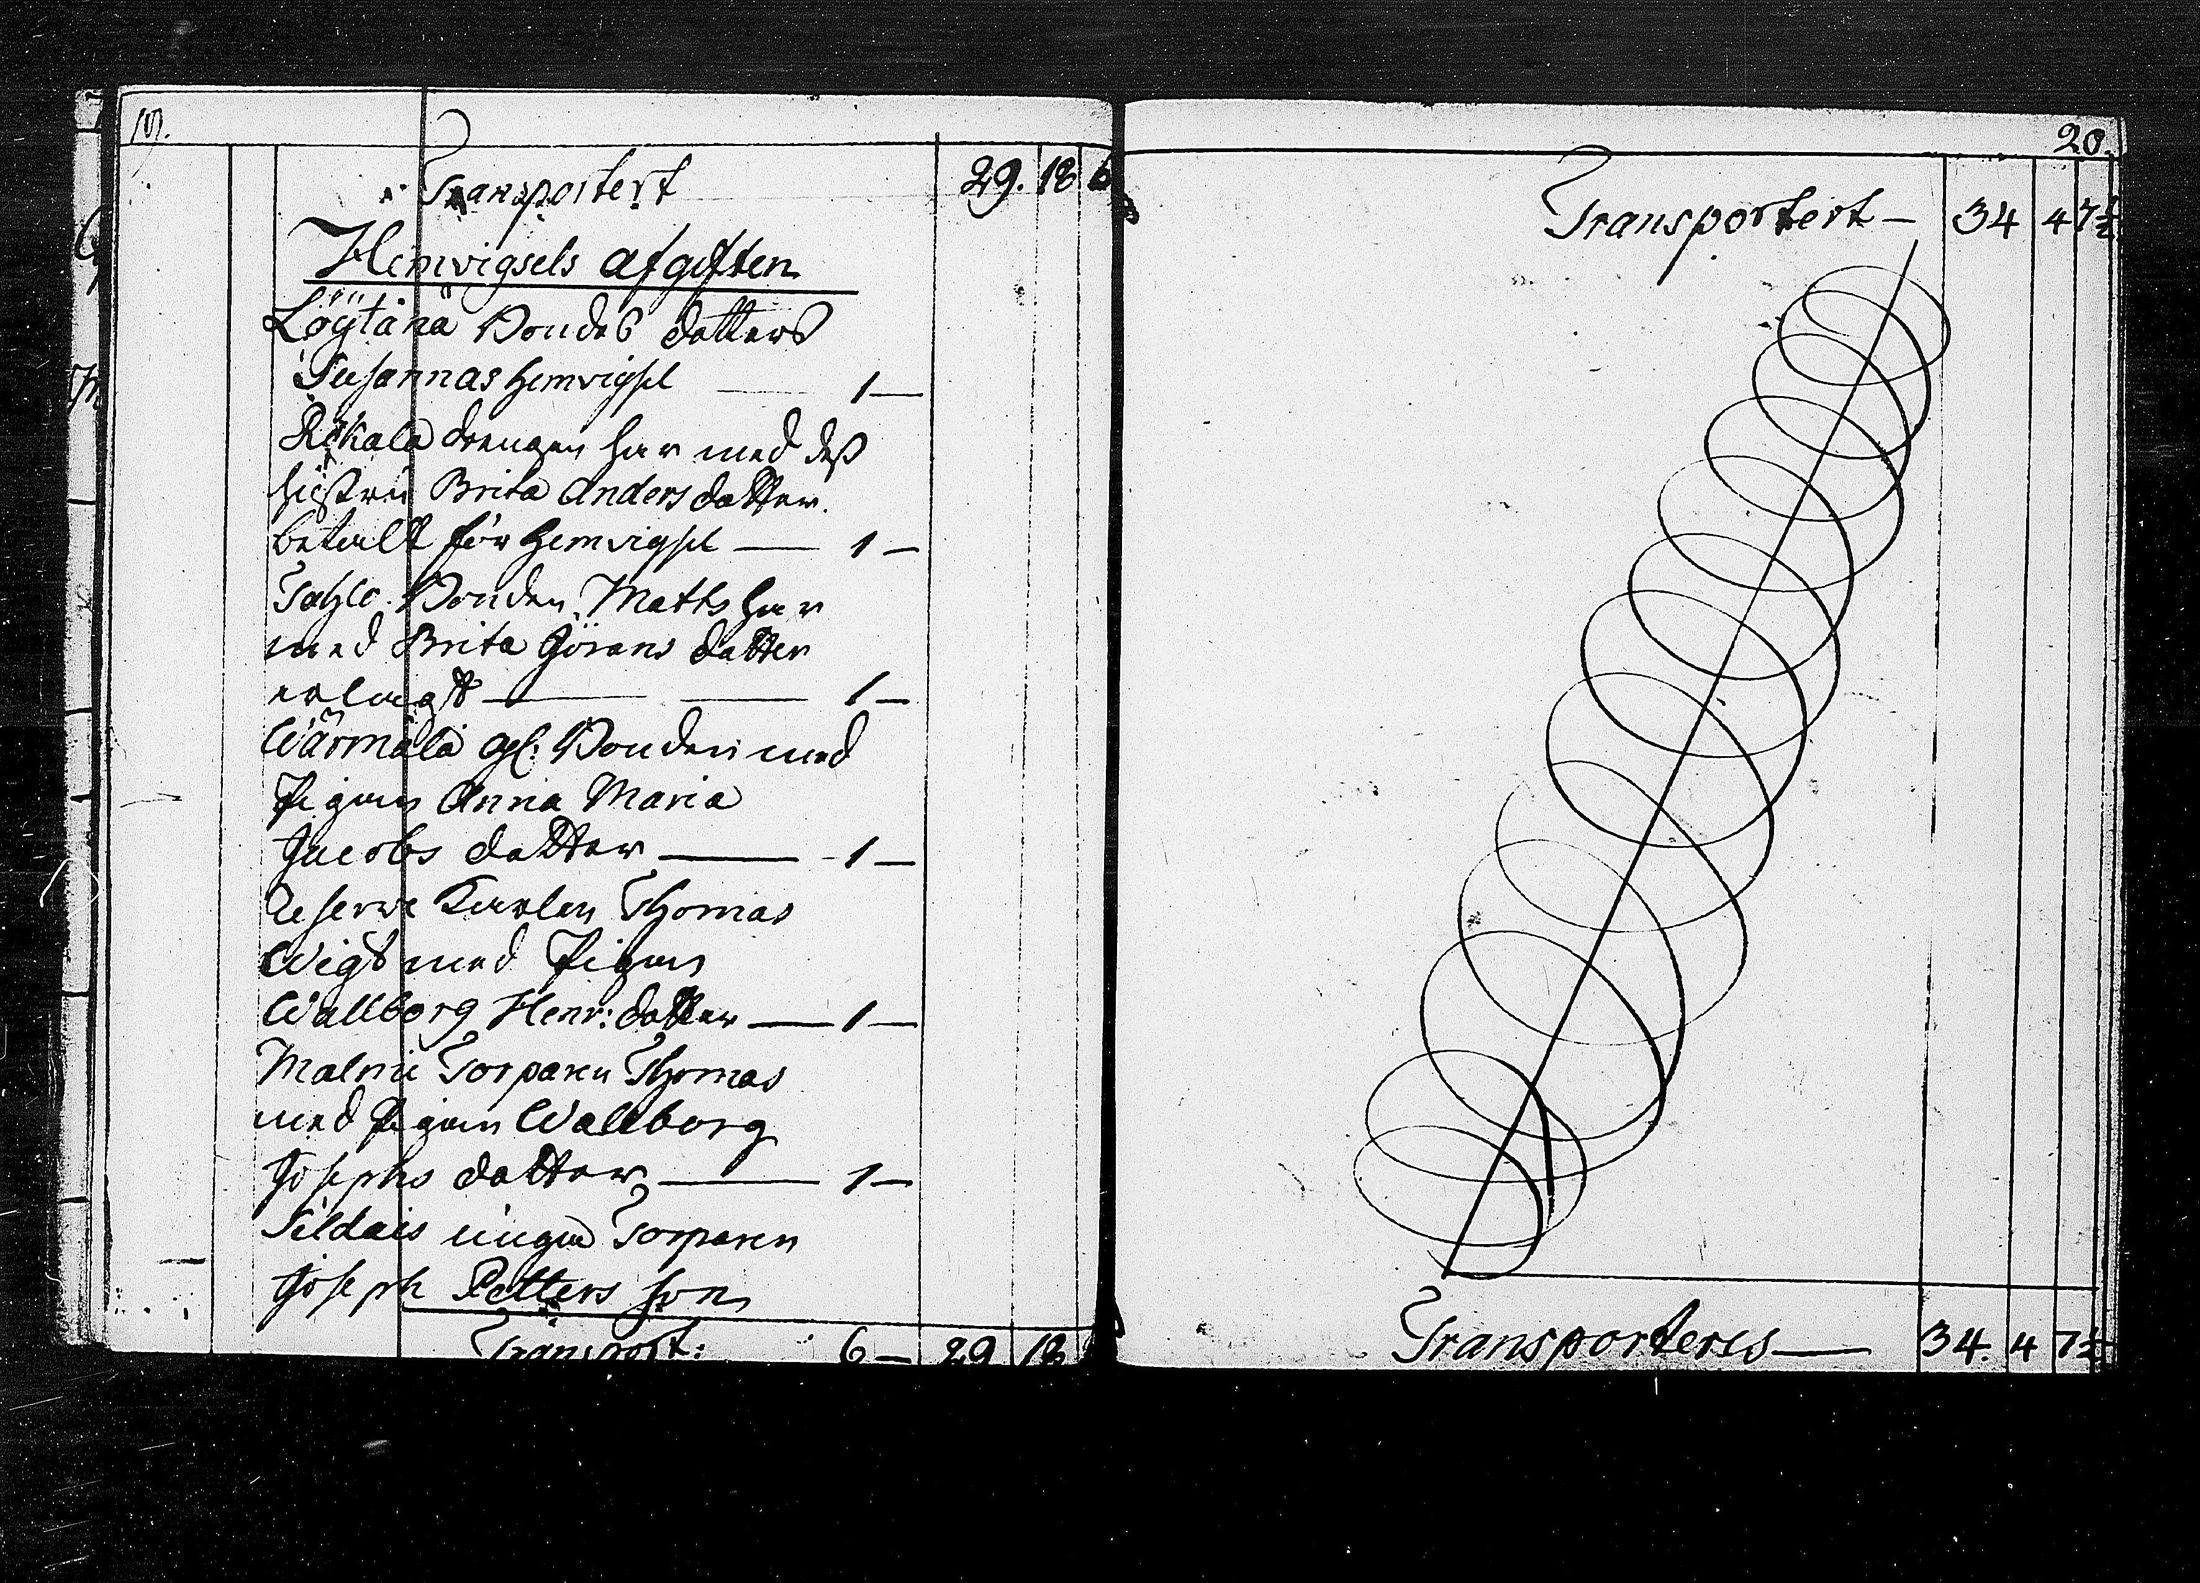 19.
Transportert 29. 18 6
Hemvigsels afgiften
Löytänä Bondes dotters
Susannas hemvigsel 1—
Rekala drengen har med dess
hustru Brita Anders dotter
betalt för hemvigsel — 1—
Sahlo Bonden Matts har
med Brita Görans dotter
erlagt — 1—
Wärmälä gl: Bonden med
Pigan Anna Maria
Jacobs dotter — 1—
Reserve Karlen Thomas
Wigt med Pigan
Wallborg Henr: dotter — 1—
Malmi Torparen Thomas
med Pigan Wallborg
Josephs dotter — 1—
Sildais unga Torparen
Joseph Petters son
Transport: 6— 29 18
20.
Transportert — 34 4 7½
Transporteres — 34. 4 7½